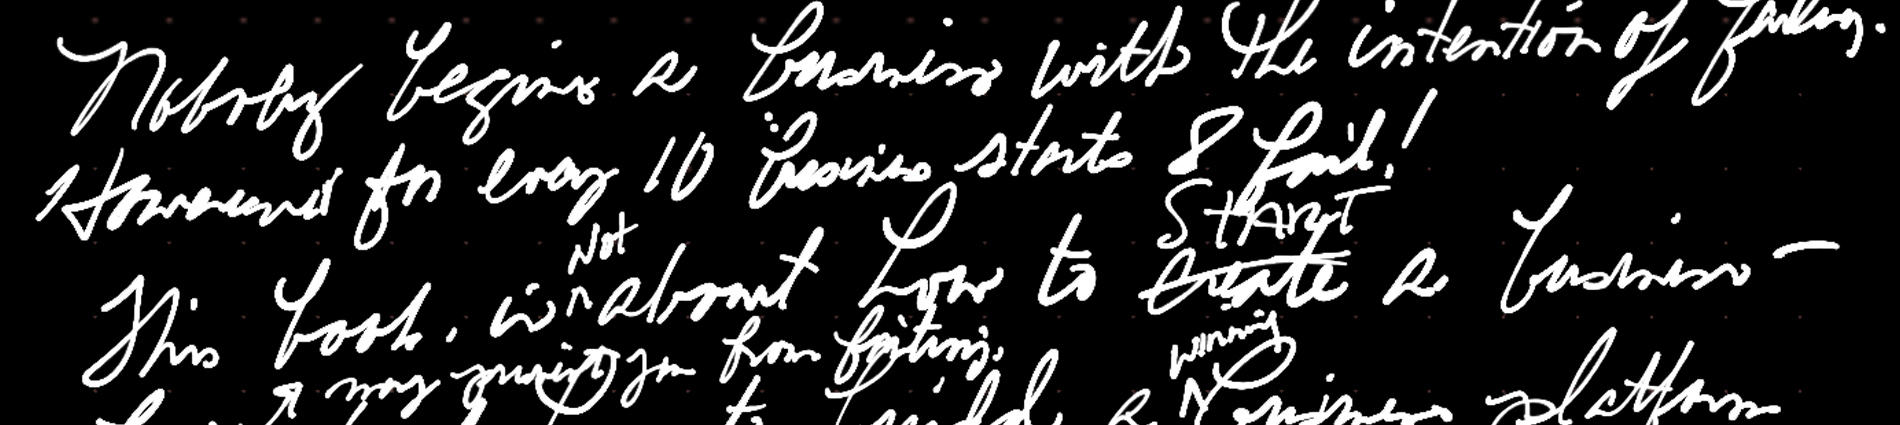 Nobody begins a business with the intention of failing.
However for every 10 business starts 8 fail!
Not START
This book, is ^ about how to create a business —
may you from failing. winning
to build a ^ business platform